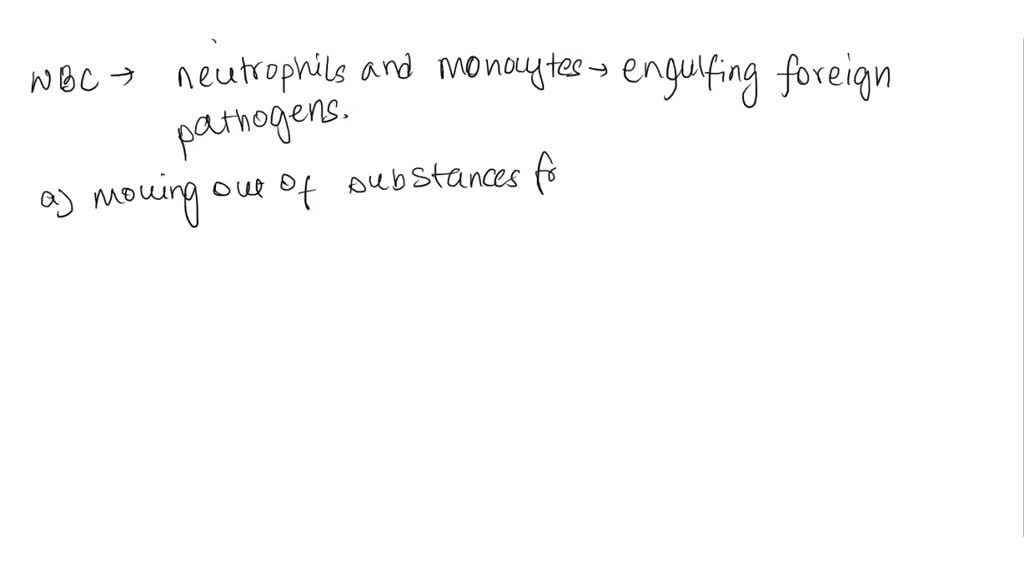 WBC → neutrophils and monocytes → engulfing foreign
pathogens.
a) moving out of substances fr